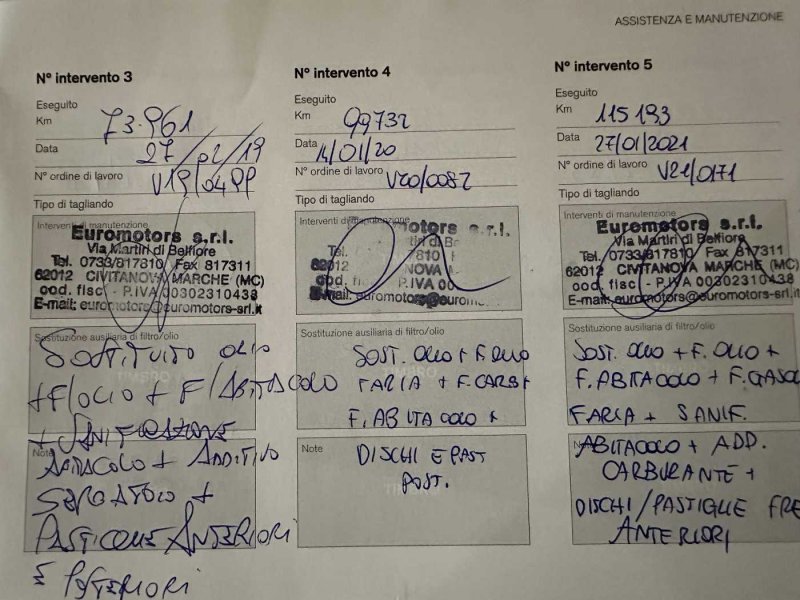 ASSISTENZA E MANUTENZIONE
N° intervento 3
Eseguito
Km 73.961
Data 27/02/19
N° ordine di lavoro V19/0499
Tipo di tagliando
Interventi di manutenzione
Euromotors s.r.l.
Via Martiri di Belfiore
Tel. 0733/817810 Fax 817311
62012 CIVITANOVA MARCHE (MC)
cod. fisc. - P.IVA 00302310438
E-mail: euromotors@euromotors-srl.it
Sostituzione ausiliaria di filtro/olio
SOSTITUITO OLIO
+ F/OLIO + F/ABITACOLO
+ SANIFICAZIONE
Note
ABITACOLO + ADDITIVO
SERBATOIO +
PASTIGLIE ANTERIORI
E POSTERIORI
N° intervento 4
Eseguito
Km 99732
Data 14/01/20
N° ordine di lavoro V20/0082
Tipo di tagliando
Interventi di manutenzione
motors s.r.l.
Tel.
62012
cod. fis
P.IVA 00
E-mail: euromotors@eurom
Sostituzione ausiliaria di filtro/olio
SOST. OLIO + F. OLIO
FARIA + F. CARB +
F. ABITACOLO +
Note
DISCHI E PAST
POST.
N° intervento 5
Eseguito
Km 115193
Data 27/01/2021
N° ordine di lavoro V21/0171
Tipo di tagliando
Interventi di manutenzione
Euromotors s.r.l.
Via Martiri di Belfiore
Tel. 0733/817810 Fax 817311
62012 CIVITANOVA MARCHE (MC)
cod. fisc. - P.IVA 00302310438
E-mail: euromotors@euromotors-srl.it
Sostituzione ausiliaria di filtro/olio
SOST. OLIO + F. OLIO +
F. ABITACOLO + F. GASOL
FARIA + SANIF.
ABITACOLO + ADD.
CARBURANTE +
DISCHI/PASTIGLIE FRE
ANTERIORI